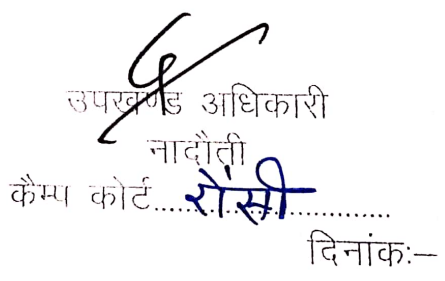 उपखण्ड अधिकारी
नादौती
कैम्प कोर्ट.....रौंसी..........
दिनांक:–